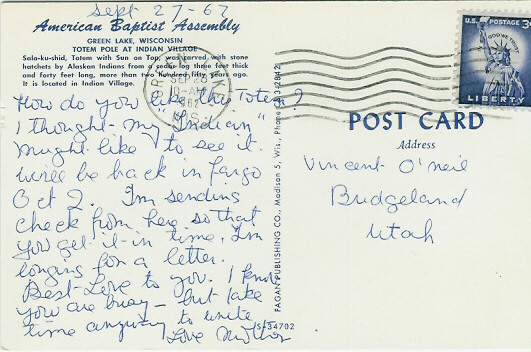 Sept 27-62
American Baptist Assembly
GREEN LAKE, WISCONSIN
TOTEM POLE AT INDIAN VILLAGE
Sala-ku-shid, Totem with Sun on Top, was carved with stone
hatchets by Alaskan Indians from a cedar log three feet thick
and forty feet long, more than two hundred fifty years ago.
It is located in Indian Village.
How do you like this Totem?
I thought - my "Indian"
might like to see it.
Will be back in Fargo
Oct 2. I'm sending
check from here so that
you get it in time. I'm
longing for a letter.
Best Love to you. I know
you are busy - but take
time anyway to write
Love Mother
PAGAN PUBLISHING CO., Madison 5, Wis., Phone
S-34702
GREEN LAKE
SEP 28
WIS.
U.S. POSTAGE 3¢
IN GOD WE TRUST
LIBERTY
POST CARD
Address
Vincent O'neil
Bridgeland
Utah